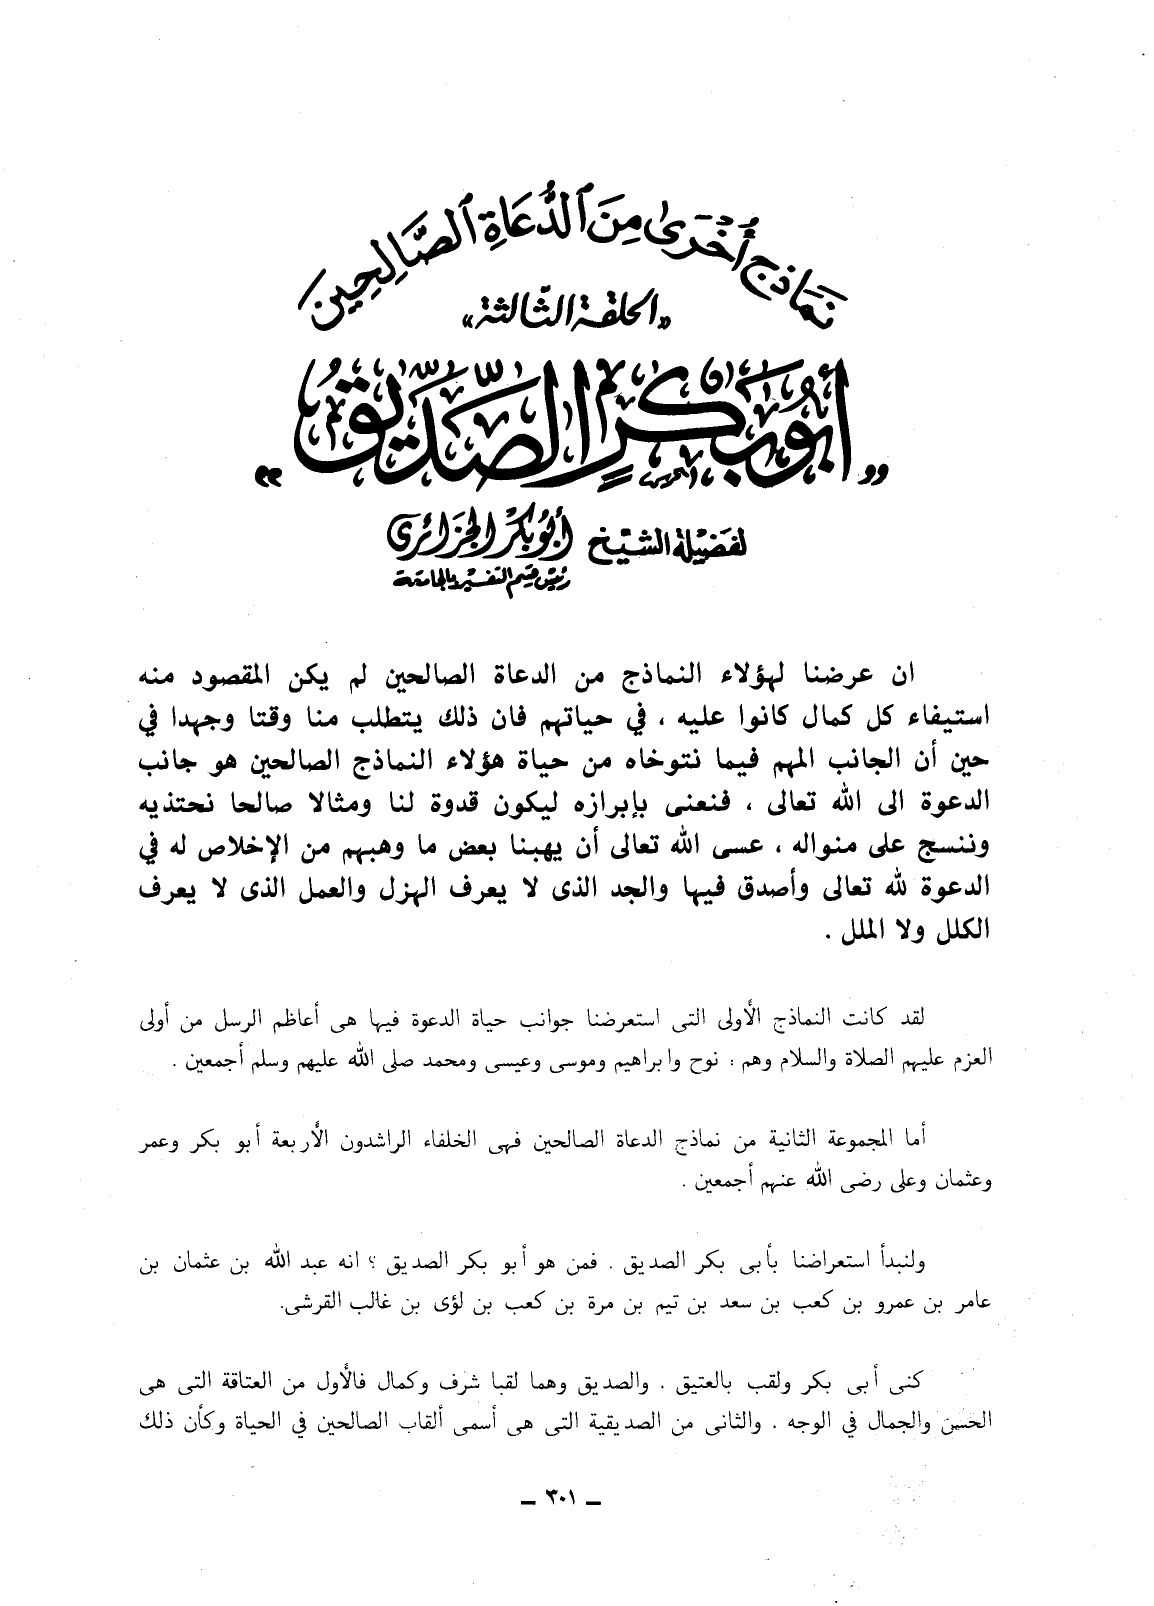 نَمَاذج أُخْرىٰ مِنَ ٱلدُّعَاةِ ٱلصَّالِحِين
«الحلقة الثَّالثة»
«أبُو بَكرٍ الصِّدِّيق»
لفضيلة الشيخ أبُو بكْر الجَزائري
رئيس قسم التفسير بالجامعة
ان عرضنا لهؤلاء النماذج من الدعاة الصالحين لم يكن المقصود منه
استيفاء كل كمال كانوا عليه ، في حياتهم فان ذلك يتطلب منا وقتا وجهدا في
حين أن الجانب المهم فيما نتوخاه من حياة هؤلاء النماذج الصالحين هو جانب
الدعوة الى الله تعالى ، فنعنى بإبرازه ليكون قدوة لنا ومثالا صالحا نحتذيه
وننسج على منواله ، عسى الله تعالى أن يهبنا بعض ما وهبهم من الإخلاص له في
الدعوة لله تعالى وأصدق فيها والجد الذى لا يعرف الهزل والعمل الذى لا يعرف
الكلل ولا الملل .
لقد كانت النماذج الأولى التى استعرضنا جوانب حياة الدعوة فيها هى أعاظم الرسل من أولى
العزم عليهم الصلاة والسلام وهم : نوح وابراهيم وموسى وعيسى ومحمد صلى الله عليهم وسلم أجمعين .
أما المجموعة الثانية من نماذج الدعاة الصالحين فهى الخلفاء الراشدون الأربعة أبو بكر وعمر
وعثمان وعلى رضى الله عنهم أجمعين .
ولنبدأ استعراضنا بأبى بكر الصديق . فمن هو أبو بكر الصديق ؟ انه عبد الله بن عثمان بن
عامر بن عمرو بن كعب بن سعد بن تيم بن مرة بن كعب بن لؤى بن غالب القرشى.
كنى أبى بكر ولقب بالعتيق . والصديق وهما لقبا شرف وكمال فالأول من العتاقة التى هى
الحسن والجمال في الوجه . والثانى من الصديقية التى هى أسمى ألقاب الصالحين في الحياة وكأن ذلك
ـ ٣٠١ ـ